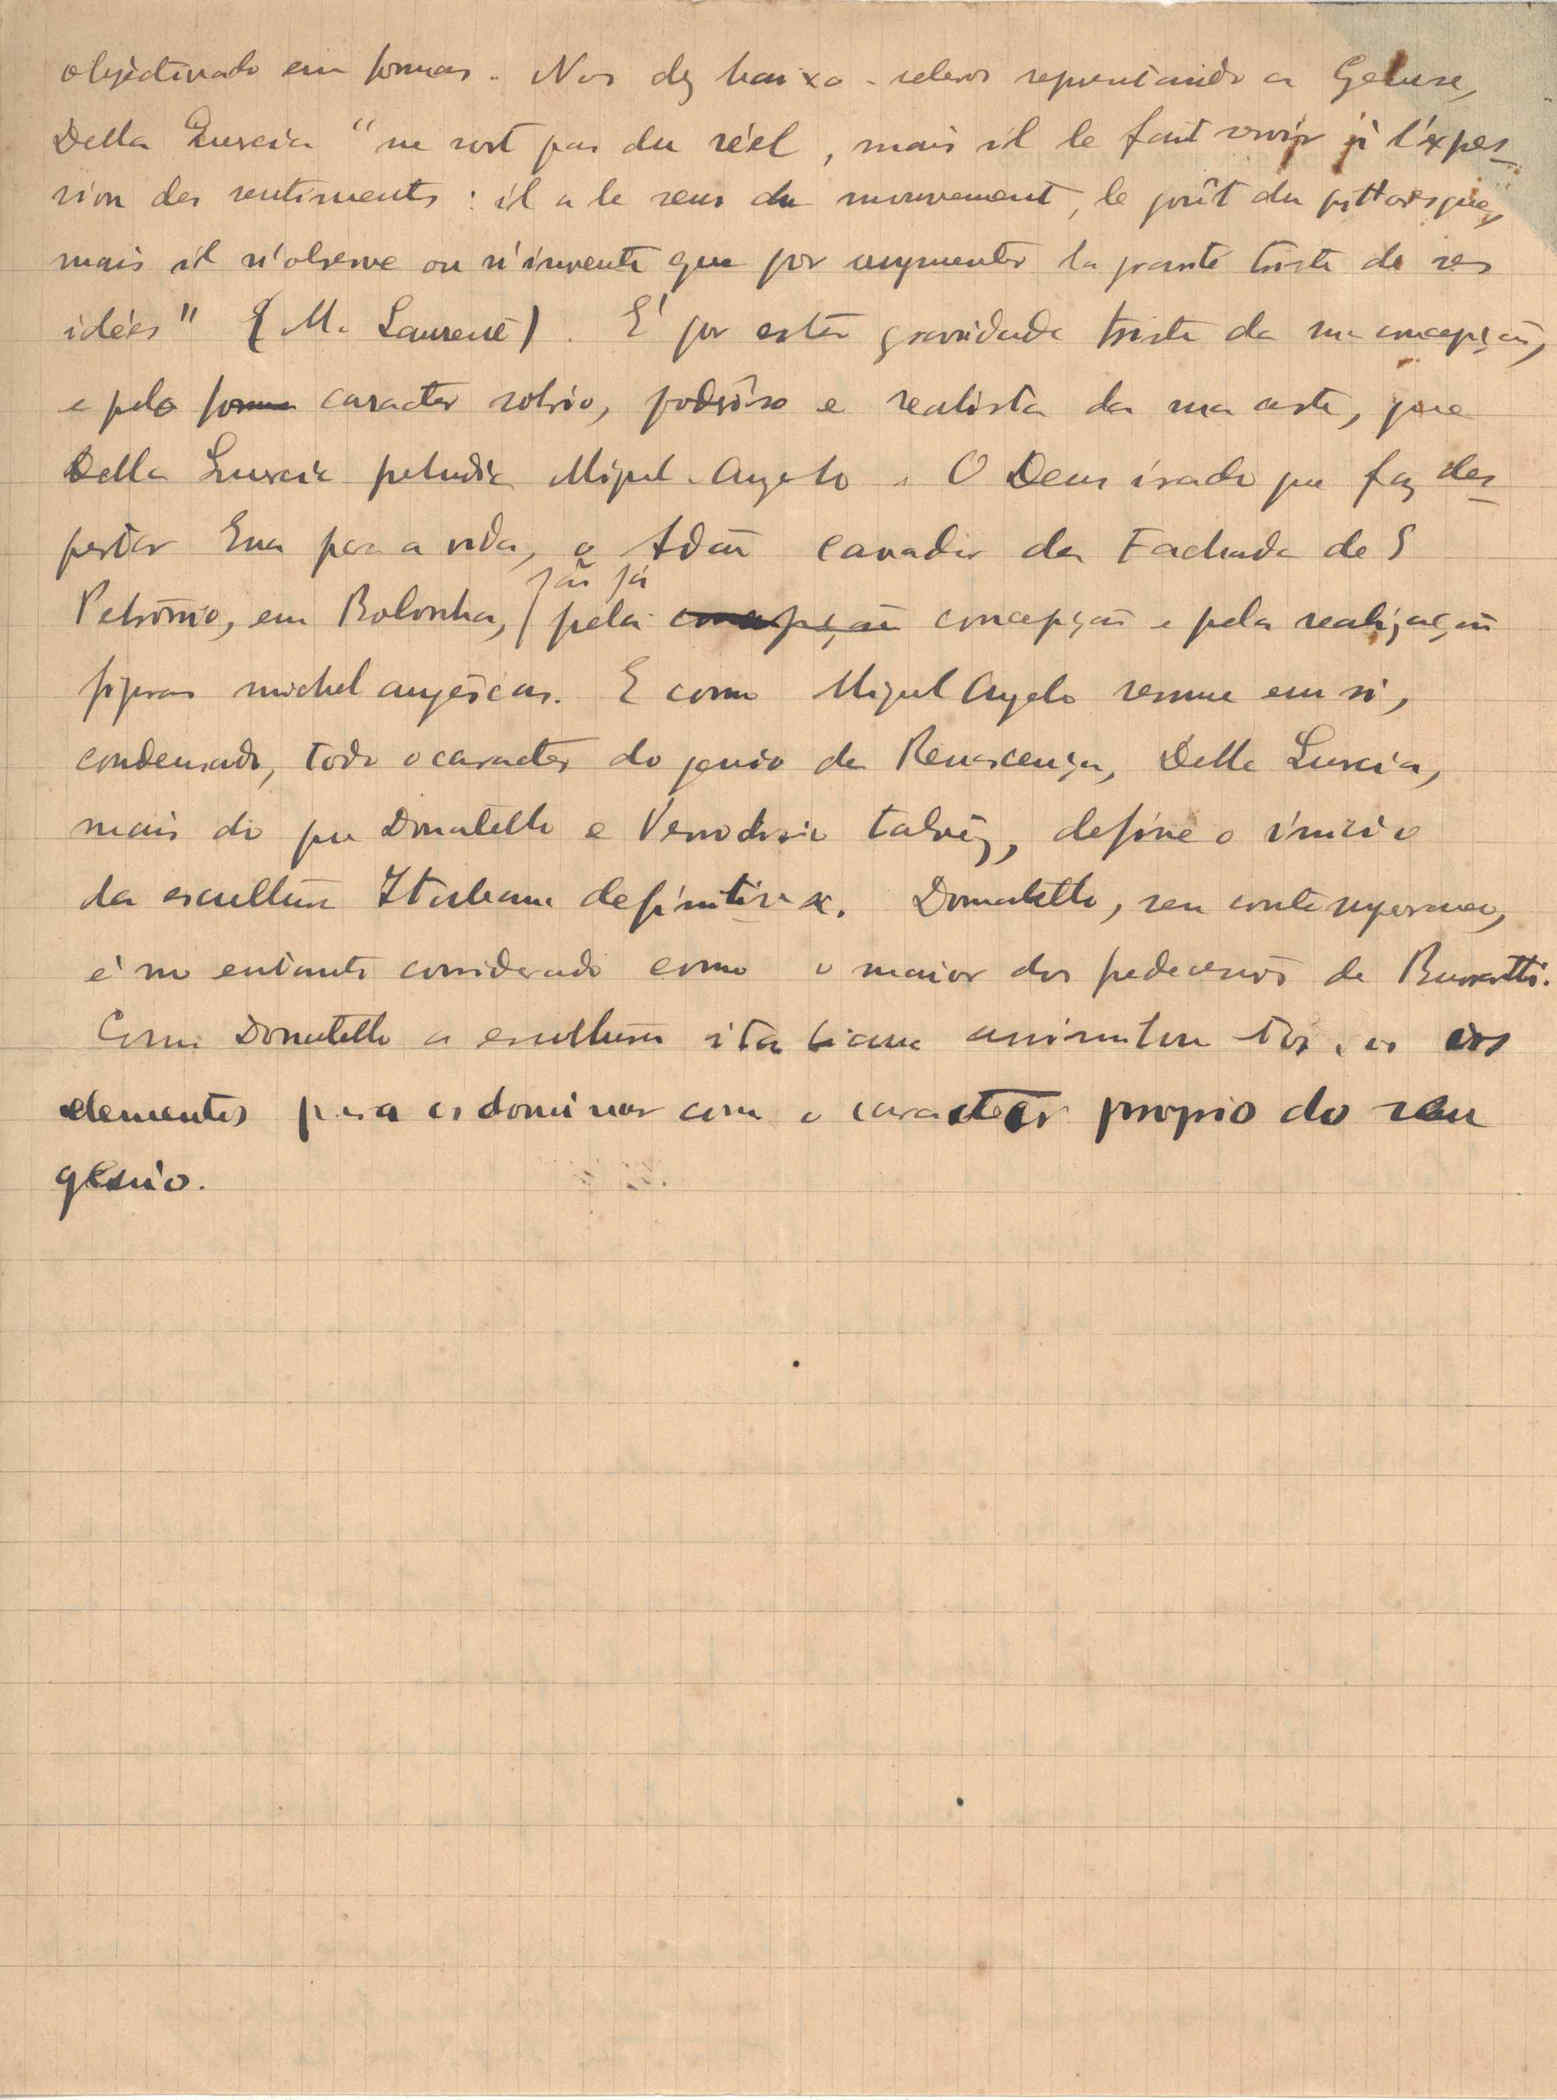 objectivado em formas. Nos dez baixo-relevos representando a Genese,
Della Quercia "ne sort pas du réel, mais il le fait servir à l'expes-
sion des sentiments: il a le sens du mouvement, le goût du pittoresque,
mais il n'observe ou n'invente que por augmenter la gravité triste de ses
idées" (M. Laurent). E' por esta gravidade triste da sua concepção,
e pelo forma caracter sobrio, podrôso e realista da sua arte, que
Della Quercia preludia Miguel-Angelo. O Deus irado que faz des-
pertar Eva para a vida, o Adão cavador da Fachada de S
são já
Petronio, em Bolonha, pela concepção concepção e pela realização
figuras michelangescas. E como Miguel Angelo resume em si,
condensado, todo o caracter do genio da Renascença, Della Quercia,
mais do que Donatello e Verrochio talvêz, define o inicio
da escultura Italiana definitiva. Donatello, seu contemporaneo,
é no entanto considerado como o maior dos predecessores de Buonarotti.
Com Donatello a escultura italiana assimilou os
elementos para os dominar com o caracter proprio do seu
génio.